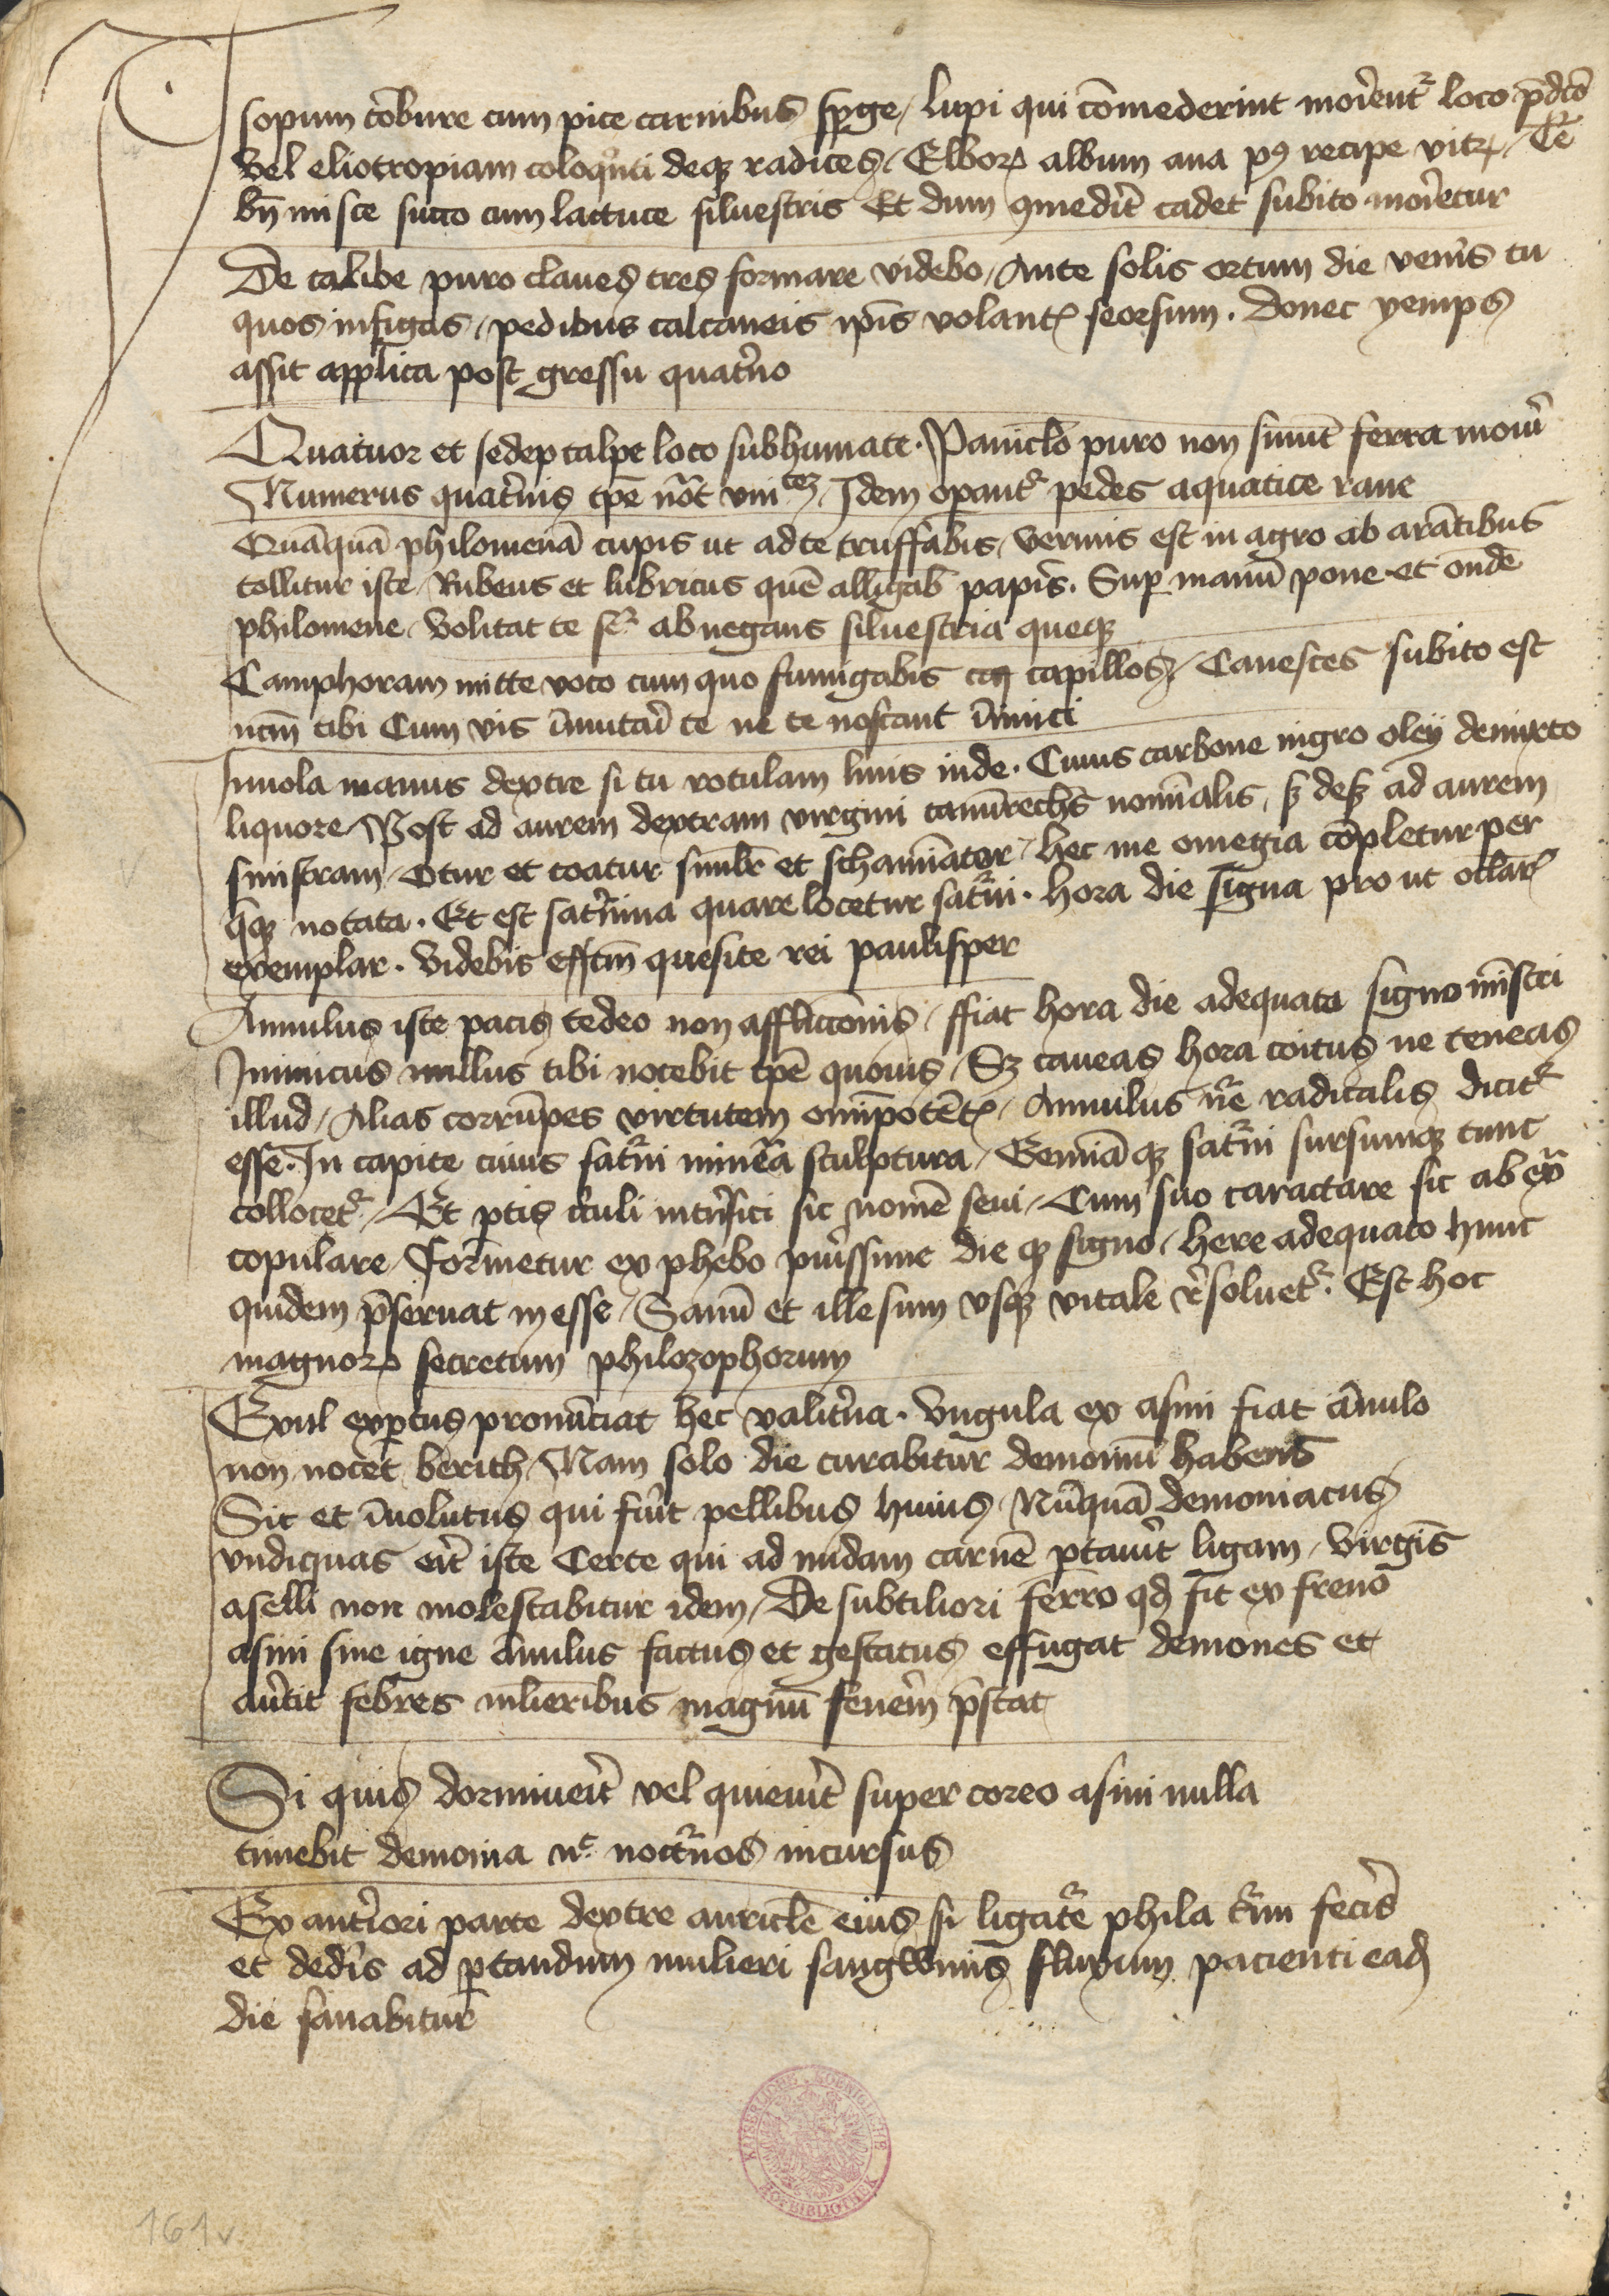 Isopum cōbure cum pice carnibus spge / lupi qui cōmederint moꝛient᷑ loco p̄dc̄o
Vel eliotropiam coloqⁱnti deqꝫ radices / Elboꝝ album ana p⁹ recipe vitꝝ / Te
bn̄ misce succo cum lactuce siluestris Et dum ꝯmedit̄ cadet subito moꝛietur
De calibe puro claues tres formare videbo / Ante solis ortum die ven̄is tu
quos infigas / pedibus calcaneis ip̄is volant seorsum . donec yemps
assit applica post gressu quat̄no
Quatuor et sedep talpe loco subhumate . Panic̄lo puro non sinūt ferra mouȓ
Numerus quat̄nis tp̄e nōt vni / Idem oꝑant᷑ pedes aquatice rane
Quāquā philomenā cupis ut ad te truffabis / vermis est in agro ab arātibus
tollitur iste / Rubeus et lubricus quē alligab papiꝛ̄ . Suꝑ manū pone et on̄de
philomene / Volitat te abnegans siluestria queqꝫ
Camphoram mitte voco cum quo fumigabis capillos / Canesces subito est
tibi Cum vis īmutaȓ te ne te noscant īimici
Inuola manus dextre si tu rotulam linis inde . Cuius carbone nigro oleij demixto
liquore / Post ad aurem dextram virgini nomīalis ad aurem
sinistram / Otur et coatur et / hec me omegia cōpletur per
notata . Et est sat᷑nina quare locetur sat᷑ni . hora die signa pro ut
exemplar . Videbis effc̄m quesite rei paulisper
Annulus iste pacis tedeo non afflicc̄onis / ffiat hora die adequata signo mīstri
Inimicus nullus tibi nocebit tp̄e quouis / Sꝫ caueas hora coitus ne teneas
illud / Alias corrūpes virtutem omīpotēt / Annulus radicalis dicit᷑
esse . In capite cuius sat᷑ni min̄ea sculptura / Gemmā qꝫ sat᷑ni sursumqꝫ tunc
collocet᷑ / Et ꝑtis cc̄uli int̄nsici sic nomē seui / Cum suo caractare sic ab ex̄a
copulare / Formetur ex phebo puȓissime die qꝫ signo / here adequato hunc
quidem p̄seruat in esse / Sanū et illesum vsqꝫ vitale r̄soluet᷑ . Est hoc
magnoꝝ secretum philozophorum
Exul exꝑtus pronūciat hec valit̄na . Vngula ex asini fiat ānulo
non nocet berith / Nam solo die curabitur demoniū habens
Sic et īuolutus qui fuȋt pellibus huius / Nūquā demoniacus
vndiquas eȓt iste Certe qui ad nudam carnē ꝑtauȋt ligam / virgīs
aselli non molestabitur idem / De subtiliori ferro qd̄ fit ex freno
asini sine igne ānulus factus et gestatus effugat demones et
auȇtit febres mlieribus magnū p̄stat
Si quis dormiueȓt vel quieuȋt super coreo asini nulla
timebit demonia n̄c noct᷑nos incursus
Ex ant̄iori parte dextre auricl̄e eius si ligat᷑e phila t᷑im fecȋs
et dedȋs ad ꝑtandum mulieri sangwinis fluxum pacienti ead̄
die sanabitur
KAISERLICHE KOENIGLICHE HOFBIBLIOTHEK
161v